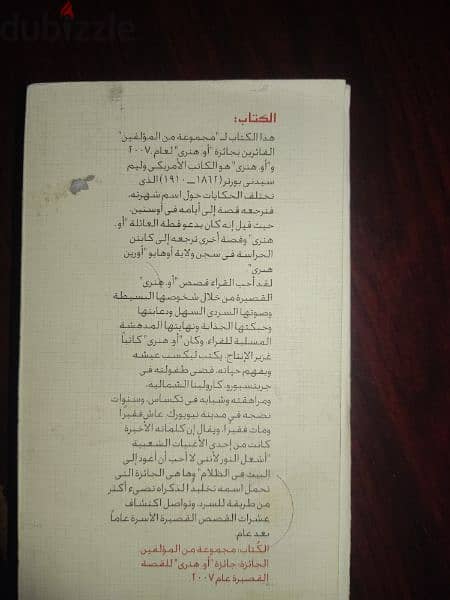 dubizzle
الكتاب:
هذا الكتاب لـ "مجموعة من المؤلفين"
الفائزين بجائزة "أو. هنرى" لعام ٢٠٠٧.
و"أو. هنرى" هو الكاتب الأمريكى وليم
سيدنى بورتر (١٨٦٢ــ١٩١٠) الذى
تختلف الحكايات حول اسم شهرته،
فترجعه قصة إلى أيامه فى أوستين،
حيث قيل إنه كان يدعو قطة العائلة "أو.
هنرى" وقصة أخرى ترجعه إلى كابتن
الحراسة فى سجن ولاية أوهايو "أورين
هنرى"
لقد أحب القراء قصص "أو. هنرى"
القصيرة من خلال شخوصها البسيطة
وصوتها السردى السهل ودعابتها
وحبكتها الجذابة ونهايتها المدهشة
المسلية للقراء، وكان "أو. هنرى" كاتباً
غزير الإنتاج، يكتب ليكسب عيشه
ويفهم حياته، قضى طفولته فى
جرينسبورو، كارولينا الشمالية،
ومراهقته وشبابه فى تكساس، وسنوات
نضجه فى مدينة نيويورك. عاش فقيرا
ومات فقيرا. ويقال إن كلماته الأخيرة
كانت من إحدى الأغنيات الشعبية
"أشعل النور لأننى لا أحب أن أعود إلى
البيت فى الظلام" وها هى الجائزة التى
تحمل اسمه تخليد الذكراه تضىء أكثر
من طريقة للسرد، وتواصل اكتشاف
عشرات القصص القصيرة الآسرة عاماً
بعد عام.
الكُتاب: مجموعة من المؤلفين
الجائزة: جائزة "أو. هنرى" للقصة
القصيرة عام ٢٠٠٧